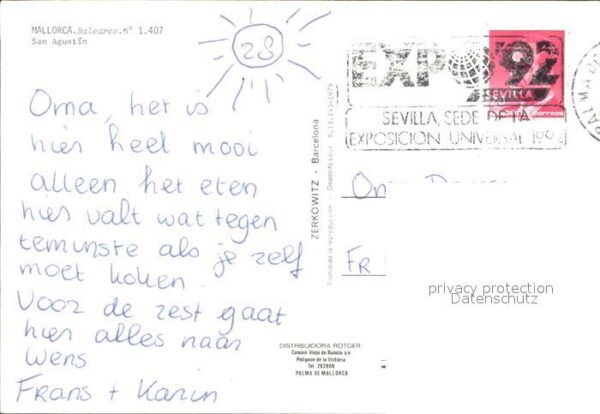 MALLORCA.Baleares.nº 1.407
San Agustín
28
EXPO '92
SEVILLA
SEVILLA, SEDE DE LA
EXPOSICION UNIVERSAL 1992
Oma, het is
hier heel mooi
alleen het eten
hier valt wat tegen
temunste als je zelf
moet koken.
Voor de rest gaat
hier alles naar
wens
Frans + Karin
ZERKOWITZ - Barcelona
FR
privacy protection
Datenschutz
DISTRIBUIDORA ROTGER
Camino Viejo de Buñola s/n
Polígono de la Victoria
Tel. 292808
PALMA DE MALLORCA